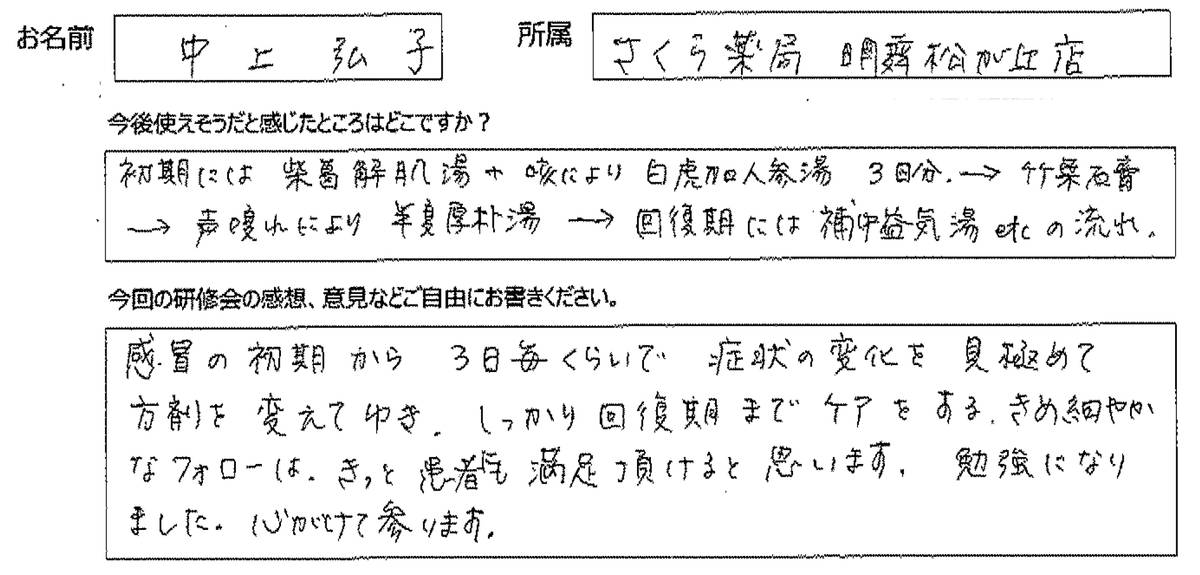 お名前 中上 弘子 所属 さくら薬局 明舞松が丘店
今後使えそうだと感じたところはどこですか？
初期には 柴葛解肌湯 + 咳により 白虎加人参湯 3日分.→ 竹葉石膏
→ 声嗄れにより 半夏厚朴湯 → 回復期には 補中益気湯 etc の流れ。
今回の研修会の感想、意見などご自由にお書きください。
感冒の初期から 3日毎くらいで 症状の変化を 見極めて
方剤を 変えてゆき、しっかり回復期までケアをする、きめ細やか
なフォローは、きっと患者にも満足頂けると思います。 勉強になり
ました。心がけて参ります。